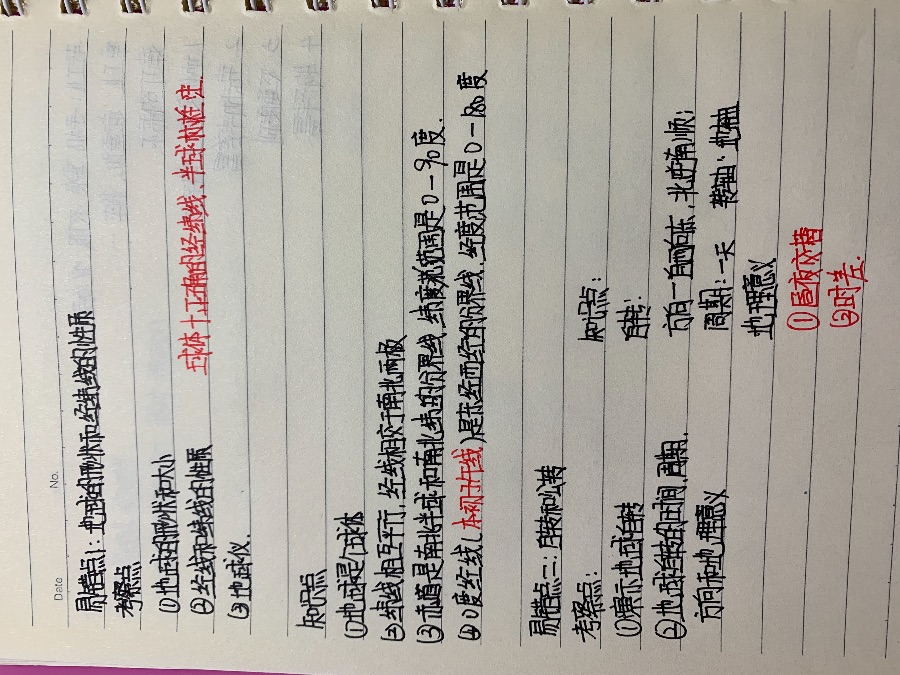 Date No.
易错点1:地球的形状和经纬线的性质
考察点
①地球的形状和大小
②经线和纬线的性质 球体+正确的经纬线、半球标注
③地球仪.
知识点
①地球是个球体
②纬线相互平行,经线相交于南北两极
③赤道是南北半球和南北纬的分界线,纬度范围是0-90度.
④0度经线(本初子午线)是东经西经的分界线,经度范围是0-180度
易错点二:自转和公转
考察点: 知识点:
①演示地球自转 自转:
②地球自转的时间,周期, 方向一自西向东,北逆南顺;
方向和地理意义 周期:一天 转轴:地轴
地理意义
①昼夜交替
②时差.